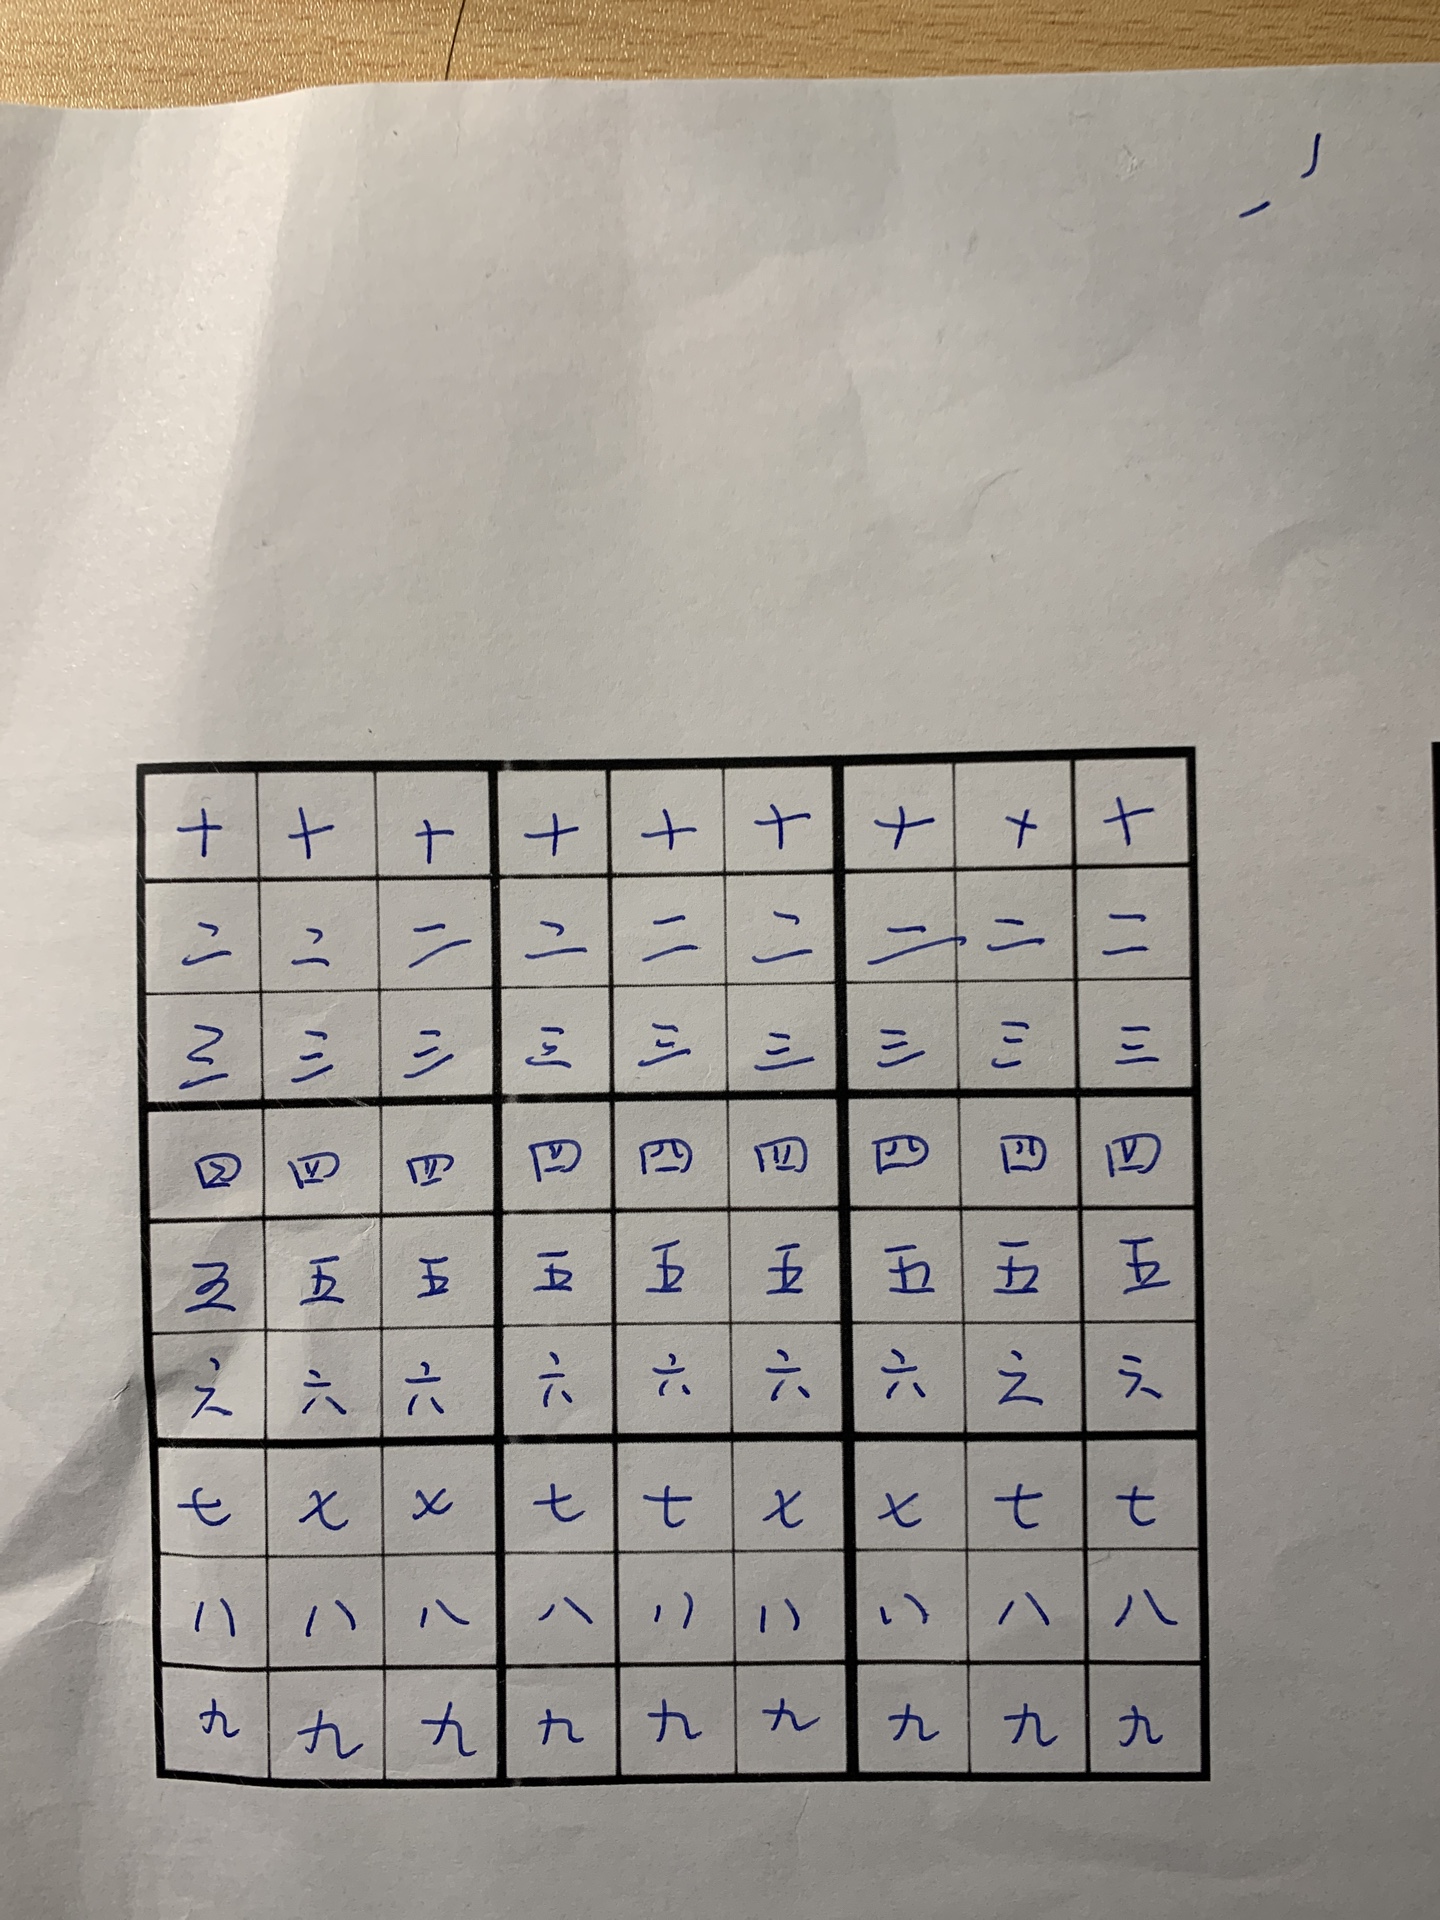 十 十 十 十 十 十 十 十 十
二 二 二 二 二 二 二 二 二
三 三 三 三 三 三 三 三 三
四 四 四 四 四 四 四 四 四
五 五 五 五 五 五 五 五 五
六 六 六 六 六 六 六 六 六
七 七 七 七 七 七 七 七 七
八 八 八 八 八 八 八 八 八
九 九 九 九 九 九 九 九 九